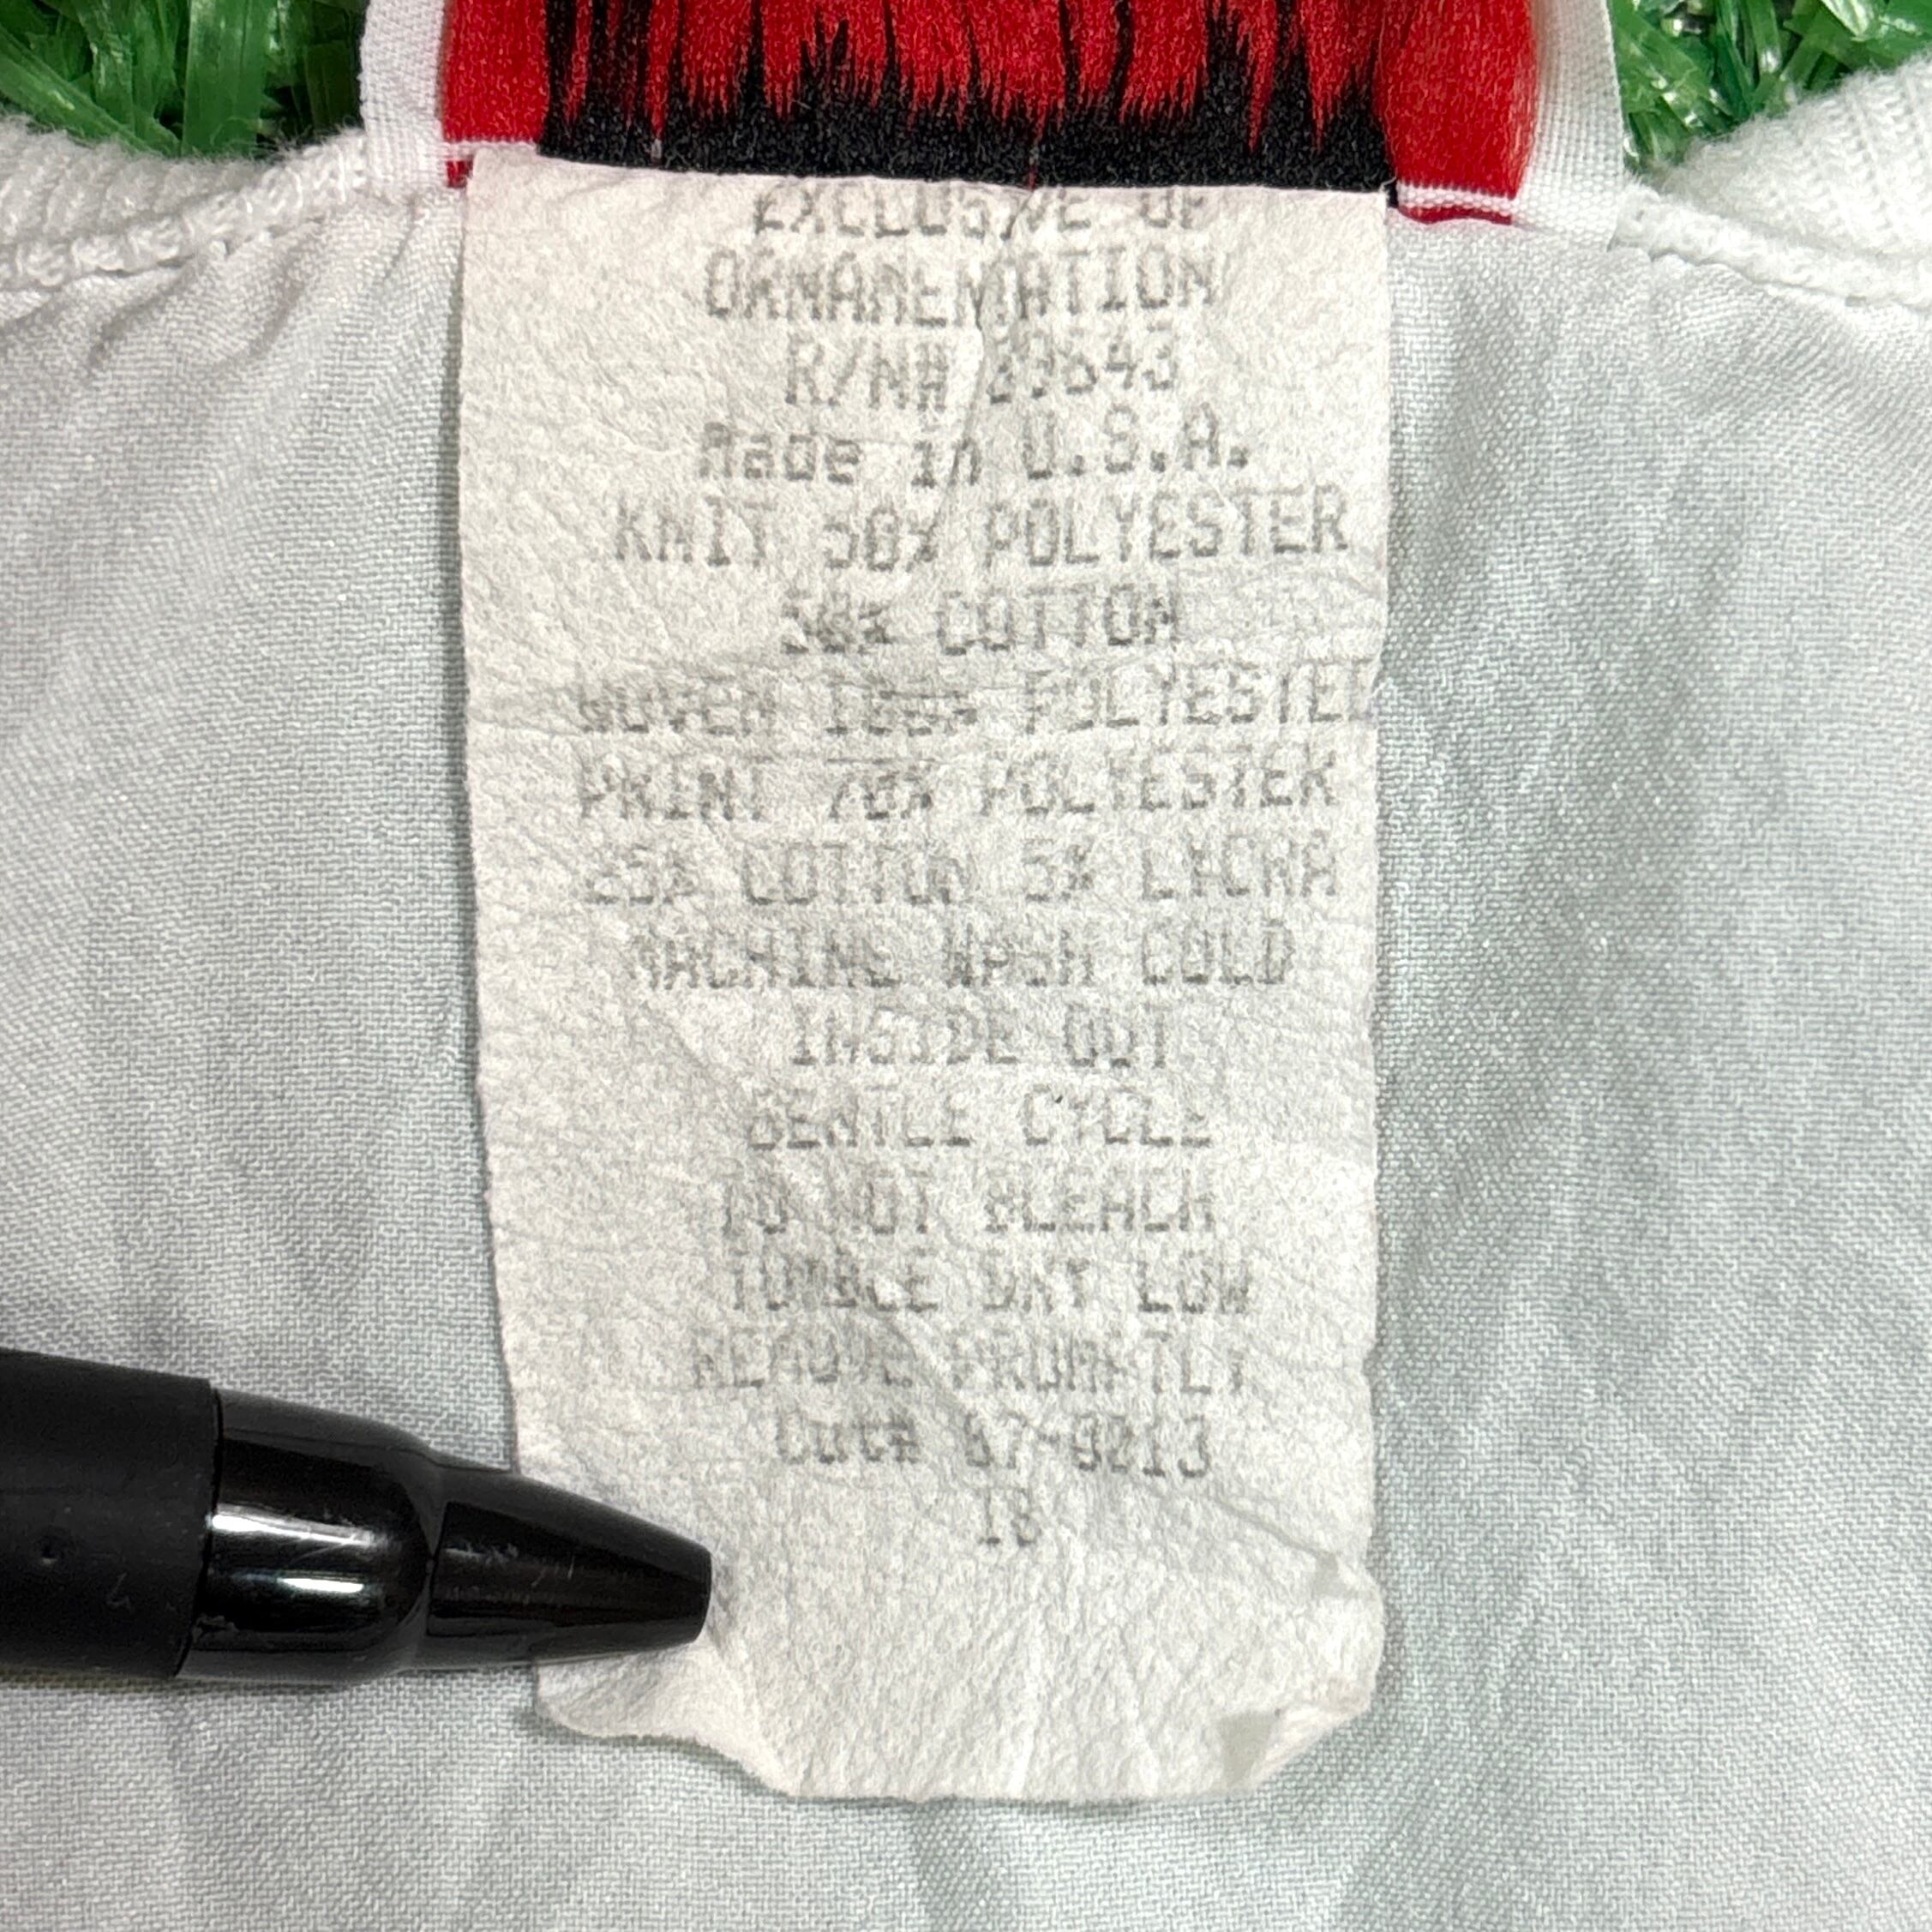 EXCLUSIVE OF
ORNAMENTATION
R/N#
Made in U.S.A.
KNIT 50% POLYESTER
50% COTTON
WOVEN 100% POLYESTER
PRINT 70% POLYESTER
25% COTTON 5% LYCRA
MACHINE WASH COLD
INSIDE OUT
GENTLE CYCLE
DO NOT BLEACH
TUMBLE DRY LOW
REMOVE PROMPTLY
Cut# 07-0213
18